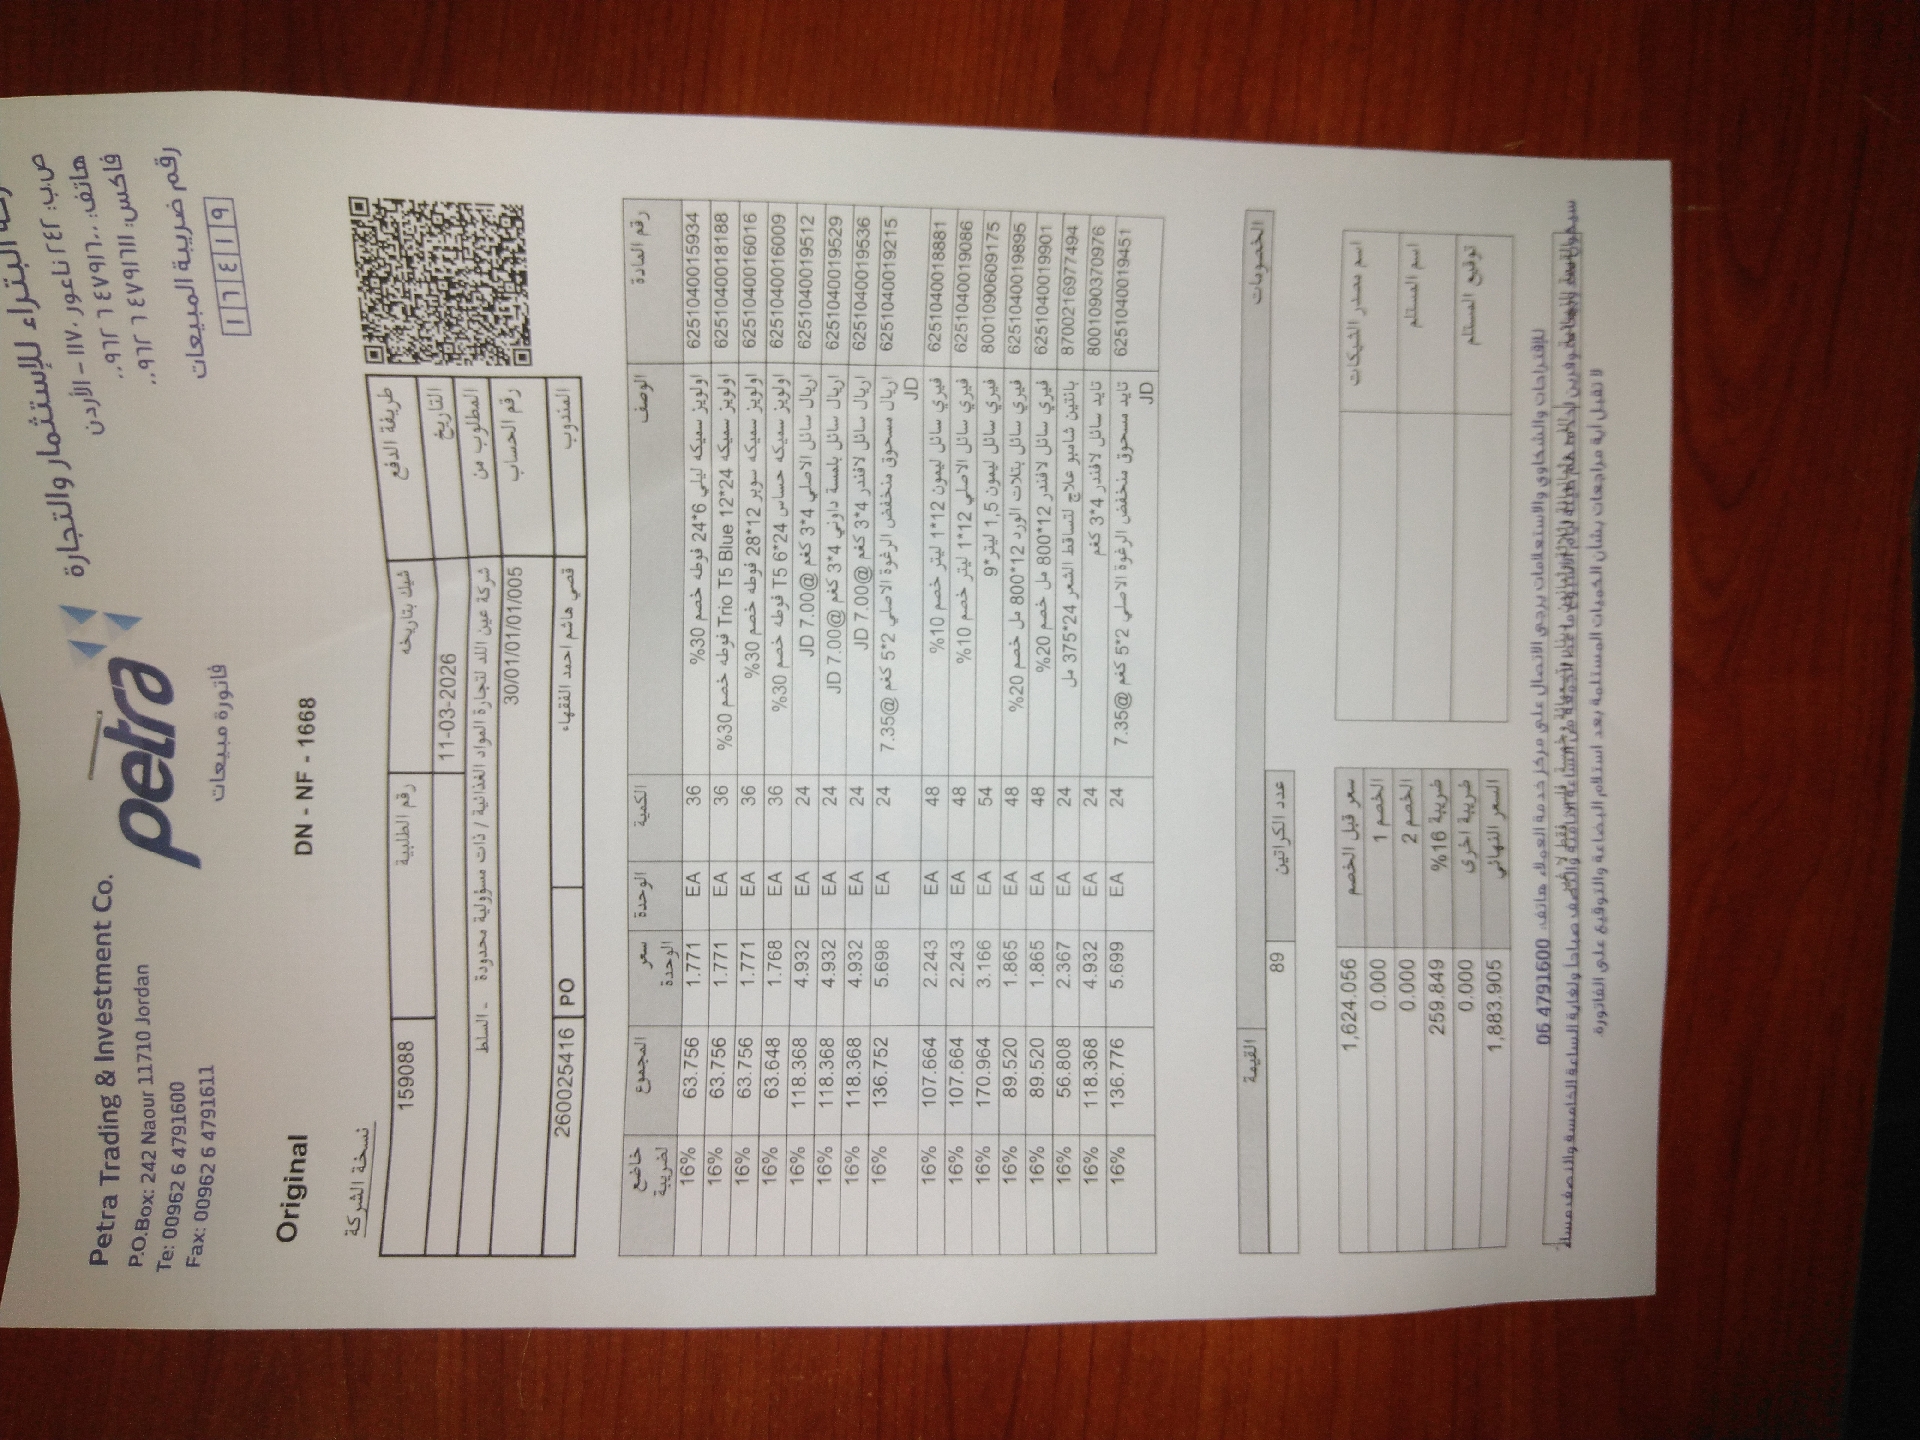 Petra Trading & Investment Co.
P.O.Box: 242 Naour 11710 Jordan
Te: 00962 6 4791600
Fax: 00962 6 4791611
petra
البتراء للإستثمار والتجارة
ص.ب: ٢٤٢ ناعور ١١٧١٠ – الأردن
هاتف: ٠٠٩٦٢ ٦ ٤٧٩١٦٠٠
فاكس: ٠٠٩٦٢ ٦ ٤٧٩١٦١١
رقم ضريبة المبيعات
١٦٤١٩
فاتورة مبيعات
Original
DN - NF - 1668
نسخة الشركة
طريقة الدفع شيك بتاريخه رقم الطلبية 159088
التاريخ 11-03-2026
المطلوب من شركة عين اللد لتجارة المواد الغذائية / ذات مسؤولية محدودة - السلط
رقم الحساب 30/01/01/01/005
المندوب قصي هاشم احمد الفقهاء PO 2600025416
رقم المادة الوصف الكمية الوحدة سعر الوحدة المجموع خاضع لضريبة
6251040015934 اولويز سميكه ليلي 6*24 فوطه خصم 30% 36 EA 1.771 63.756 16%
6251040018188 اولويز سميكه Trio T5 Blue 12*24 فوطه خصم 30% 36 EA 1.771 63.756 16%
6251040016016 اولويز سميكه سوبر 12*28 فوطه خصم 30% 36 EA 1.771 63.756 16%
6251040016009 اولويز سميكه حساس T5 6*24 فوطه خصم 30% 36 EA 1.768 63.648 16%
6251040019512 اريال سائل الاصلي 4*3 كغم @7.00 JD 24 EA 4.932 118.368 16%
6251040019529 اريال سائل بلمسة داوني 4*3 كغم @7.00 JD 24 EA 4.932 118.368 16%
6251040019536 اريال سائل لافندر 4*3 كغم @7.00 JD 24 EA 4.932 118.368 16%
6251040019215 اريال مسحوق منخفض الرغوة الاصلي 2*5 كغم @7.35 24 EA 5.698 136.752 16%
JD
6251040018881 فيري سائل ليمون 12*1 ليتر خصم 10% 48 EA 2.243 107.664 16%
6251040019086 فيري سائل الاصلي 12*1 ليتر خصم 10% 48 EA 2.243 107.664 16%
8001090609175 فيري سائل ليمون 1,5 ليتر *9 54 EA 3.166 170.964 16%
6251040019895 فيري سائل بتلات الورد 12*800 مل خصم 20% 48 EA 1.865 89.520 16%
6251040019901 فيري سائل لافندر 12*800 مل خصم 20% 48 EA 1.865 89.520 16%
8700216977494 بانتين شامبو علاج لتساقط الشعر 24*375 مل 24 EA 2.367 56.808 16%
8001090370976 تايد سائل لافندر 4*3 كغم 24 EA 4.932 118.368 16%
6251040019451 تايد مسحوق منخفض الرغوة الاصلي 2*5 كغم @7.35 24 EA 5.699 136.776 16%
JD
الخصومات القيمة
عدد الكراتين 89
اسم مصدر الشيكات
اسم المستلم
توقيع المستلم
سعر قبل الخصم 1,624.056
الخصم 1 0.000
الخصم 2 0.000
ضريبة 16% 259.849
ضريبة اخرى 0.000
السعر النهائي 1,883.905
للإقتراحات والشكاوي والاستعلامات يرجى الاتصال على مركز خدمة العملاء هاتف: 06 4791600
لا تقبل أية مراجعات بشأن الكميات المستلمة بعد استلام البضاعة والتوقيع على الفاتورة.